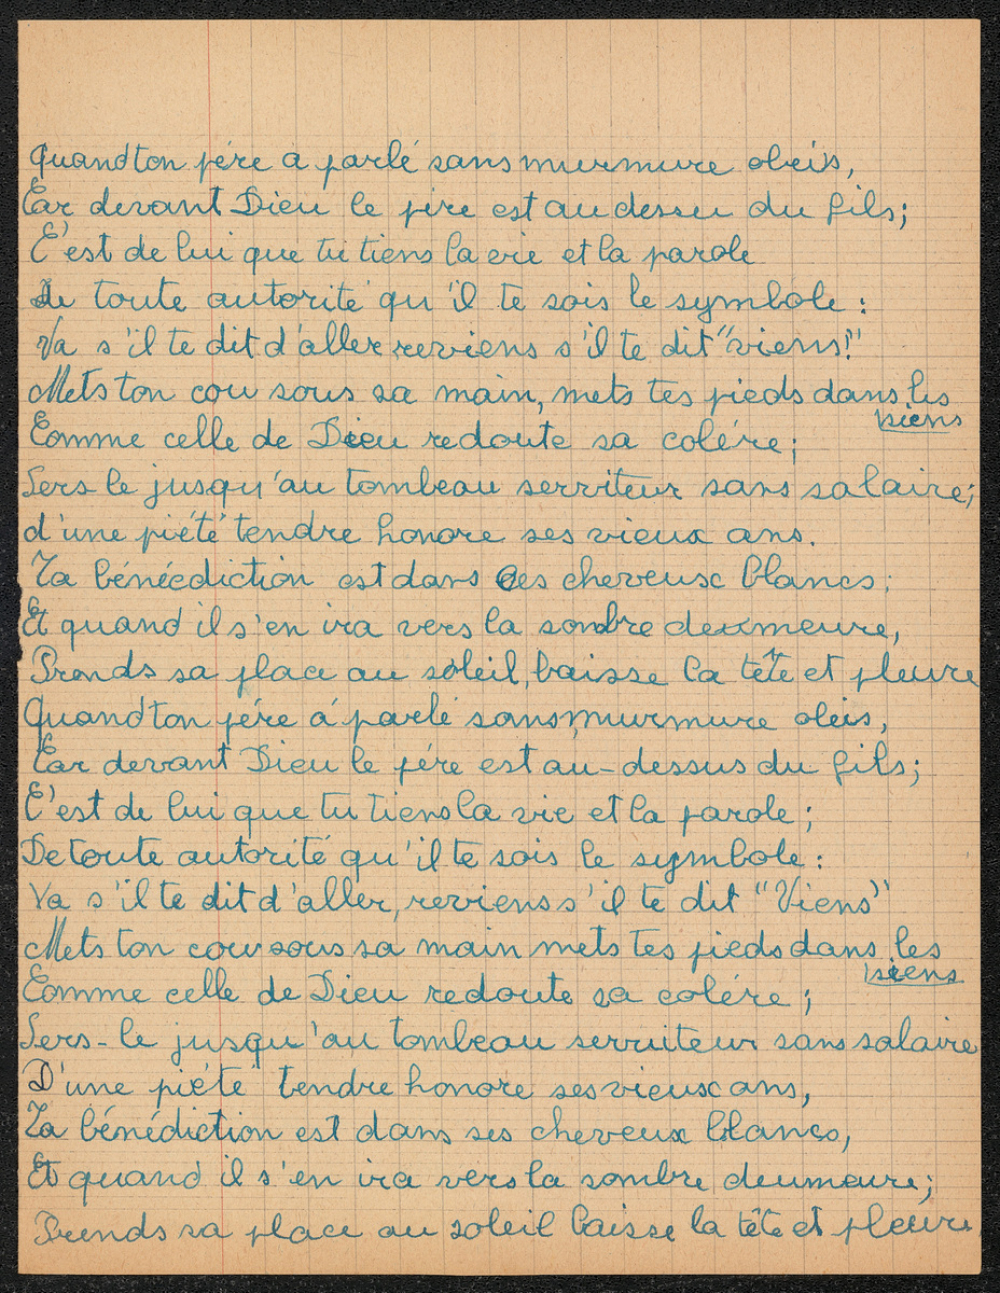 Quand ton père a parlé sans murmure obeis,
Car devant Dieu le père est au dessu du fils;
C'est de lui que tu tiens la vie et la parole
De toute autorité qu'il te sois le symbole :
Va s'il te dit d'aller reviens s'il te dit "viens!"
Mets ton cou sous sa main, mets tes pieds dans les
siens
Comme celle de Dieu redoute sa colére;
Sers le jusqu'au tombeau serviteur sans salaire;
d'une piété tendre honore ses vieux ans.
Ta bénécdiction est dans ces cheveux blancs;
Et quand il s'en ira vers la sombre deumeure,
Prends sa place au soleil, baisse la tête et pleure
Quand ton pére a parlé sans, murmure oleis,
Car devant Dieu le pére est au-dessus du fils;
C'est de lui que tu tiens la vie et la parole;
De toute autorité qu'il te sois le symbole :
Va s'il te dit d'aller, reviens s'il te dit "Viens"
Mets ton cou sous sa main mets tes pieds dans les
siens
Comme celle de Dieu redoute sa colére;
Sers-le jusqu'au tombeau serviteur sans salaire
D'une piété tendre honore ses vieux ans,
Ta bénédiction est dans ses cheveux blancs,
Et quand il s'en ira vers la sombre deumeure;
Prends sa place au soleil baisse la tête et pleure